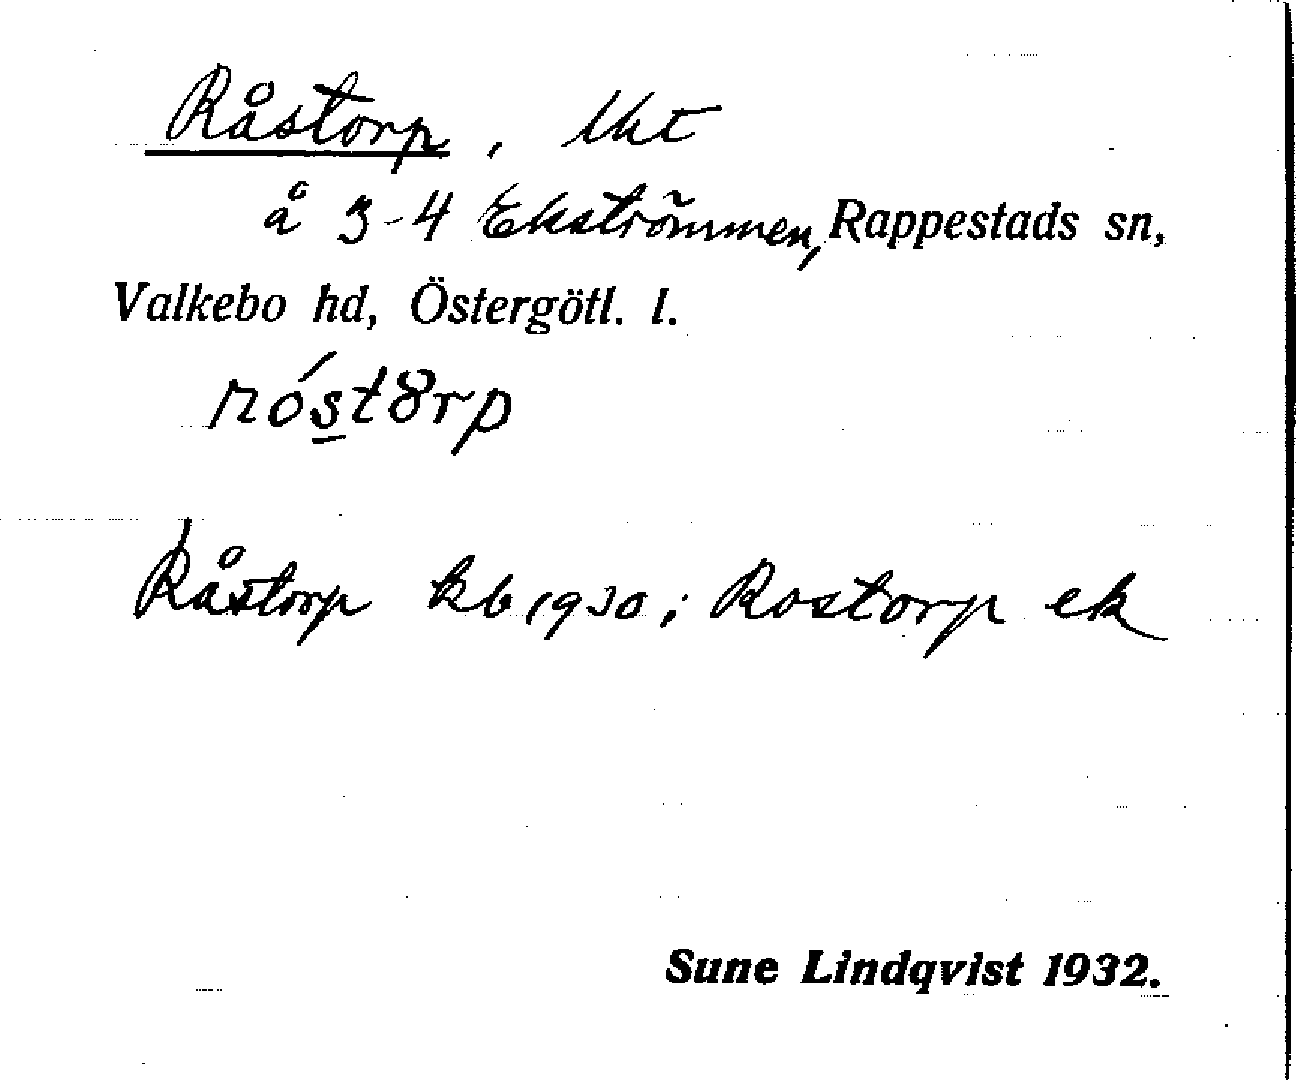 Råstorp, lht
å 3-4 Ekströmmen, Rappestads sn,
Valkebo hd, Östergötl. l.
róst8rp
Råstorp kb 1930; Rostorp ek
Sune Lindqvist 1932.